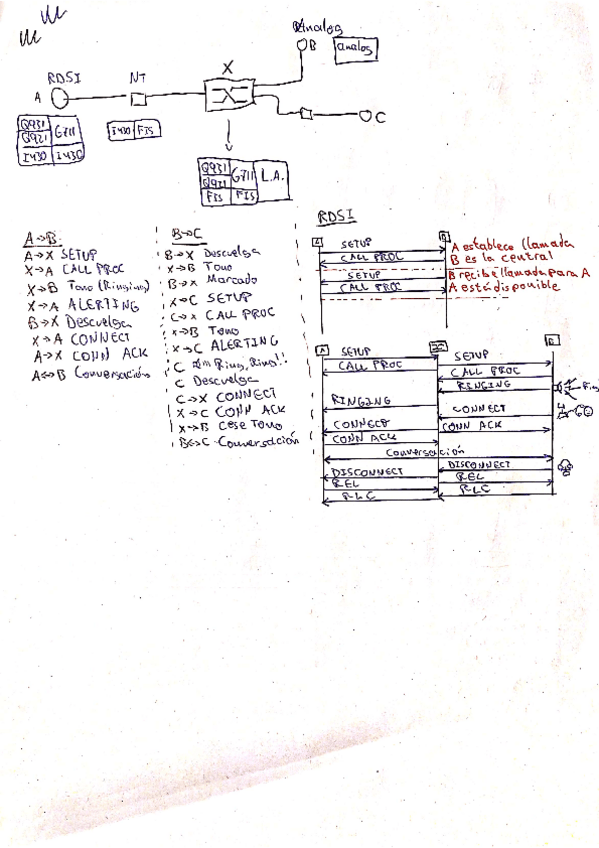 Analog
B
analog
X
RDSI
NT
A
C
Q931
Q921
G711
I430
I430
I430
FIS
Q931
Q921
G711
L.A.
FIS
FIS
A→B
A→X SETUP
X→A CALL PROC
X→B Tono (Ringing)
X→A ALERTING
B→X Descuelga
X→A CONNECT
A→X CONN ACK
A↔B Conversación
B→C
B→X Descuelga
X→B Tono
B→X Marcado
X→C SETUP
C→X CALL PROC
X→B Tono
X→C ALERTING
C Ring, Ring!!
C Descuelga
C→X CONNECT
X→C CONN ACK
X→B Cese Tono
B↔C Conversación
RDSI
SETUP
A establece llamada
CALL PROC
B es la central
SETUP
B recibe llamada para A
CALL PROC
A está disponible
A
B
SETUP
SETUP
CALL PROC
CALL PROC
RINGING
RINGING
CONNECT
CONNECT
CONN ACK
CONN ACK
Conversación
DISCONNECT
DISCONNECT
REL
REL
RLC
RLC